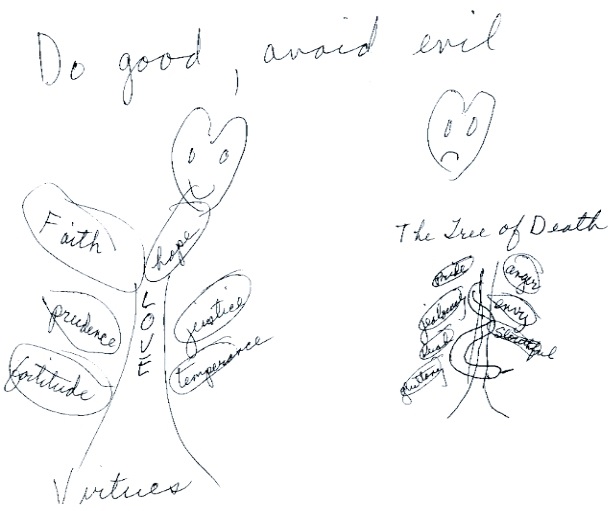 Do good, avoid evil
The Tree of Death
Faith
hope
LOVE
prudence
justice
fortitude
temperance
Virtues
pride
anger
jealousy
envy
slothful
gluttony